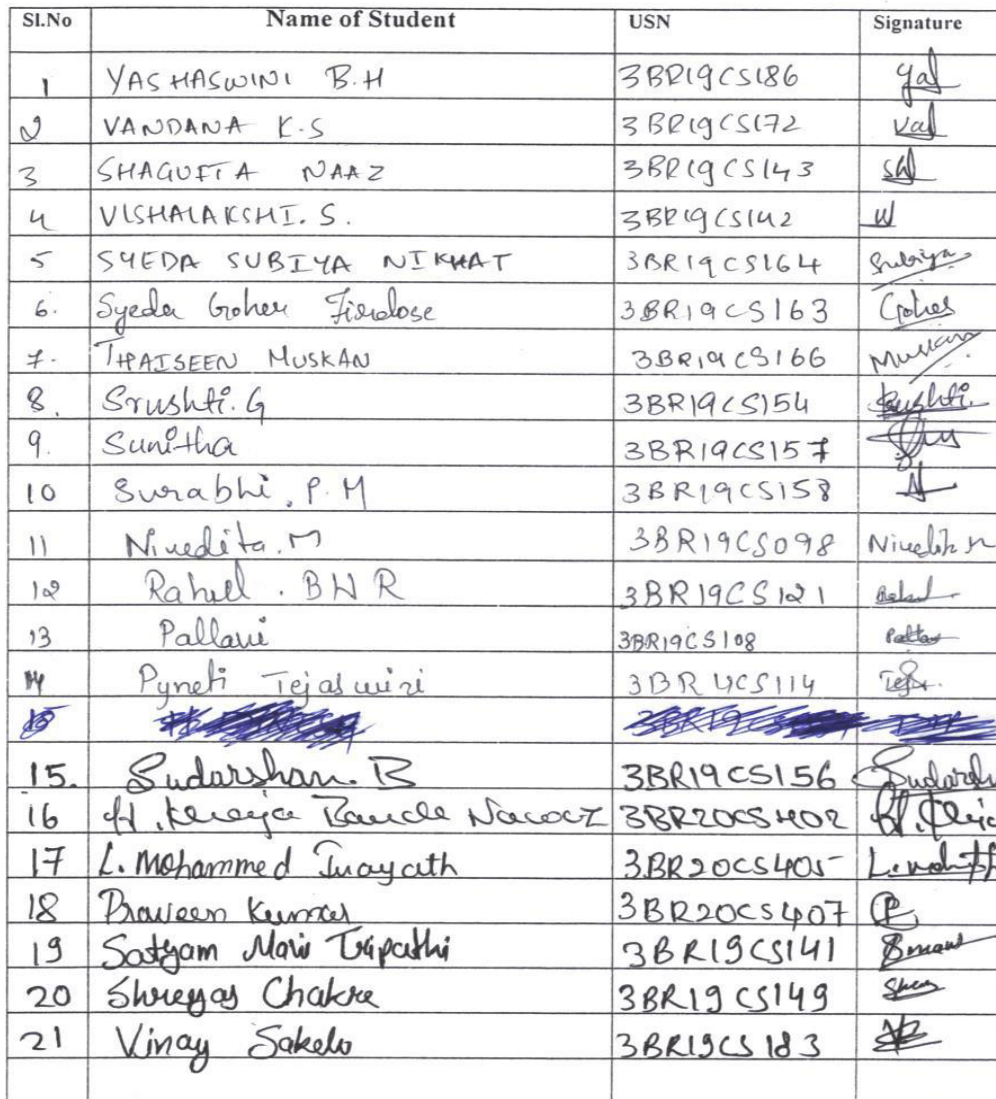 Sl.No Name of Student USN Signature
1 YASHASWINI B.H 3BR19CS186 Yas
2 VANDANA K.S 3BR19CS172 Van
3 SHAGUFTA NAAZ 3BR19CS143
4 VISHALAKSHI. S. 3BR19CS142
5 SYEDA SUBIYA NIKHAT 3BR19CS164 Subiya
6. Syeda Goher Firdose 3BR19CS163 Goher
7. THAISEEN MUSKAN 3BR19CS166 Muskan
8. Srushti. G 3BR19CS154 Srushti.
9. Sunitha 3BR19CS157
10 Surabhi. P. M 3BR19CS158
11 Nivedita. M 3BR19CS098 Nivedita M
12 Rahul . BHR 3BR19CS121
13 Pallavi 3BR19CS108
14 Pyneti Tejaswini 3BR19CS114
15. Sudarshan. B 3BR19CS156 Sudarsh
16 H. Khwaja Bande Nawaz 3BR20CS402
17 L. Mohammed Inayath 3BR20CS405
18 Praveen Kumar 3BR20CS407
19 Satyam Mani Tripathi 3BR19CS141
20 Shreyas Chakre 3BR19CS149
21 Vinay 3BR19CS183